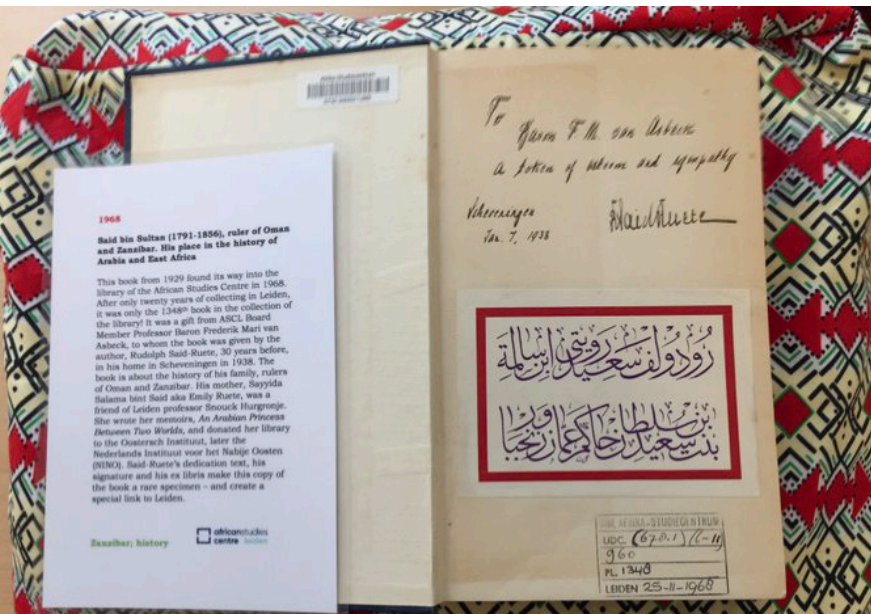 1968
Said bin Sultan (1791-1856), ruler of Oman
and Zanzibar. His place in the history of
Arabia and East Africa
This book from 1929 found its way into the
library of the African Studies Centre in 1968.
After only twenty years of collecting in Leiden,
it was only the 1348th book in the collection of
the library! It was a gift from ASCL Board
Member Professor Baron Frederik Mari van
Asbeck, to whom the book was given by the
author, Rudolph Said-Ruete, 30 years before,
in his home in Scheveningen in 1938. The
book is about the history of his family, rulers
of Oman and Zanzibar. His mother, Sayyida
Salama bint Said aka Emily Ruete, was a
friend of Leiden professor Snouck Hurgronje.
She wrote her memoirs, An Arabian Princess
Between Two Worlds, and donated her library
to the Oostersch Instituut, later the
Nederlands Instituut voor het Nabije Oosten
(NINO). Said-Ruete's dedication text, his
signature and his ex libris make this copy of
the book a rare specimen – and create a
special link to Leiden.
Zanzibar; history
africanstudies
centre leiden
To
Baron F. M. van Asbeck
A token of esteem and sympathy
Scheveningen
Jan. 7, 1938
RSaidRuete
رودولف سعيد رويتي ابن سالمة
بنت سعيد بن سلطان حاكم عمان وزنجبار
AFRIKA-STUDIECENTRUM
UDC (678.1) (6-11)
960
PL. 1348
LEIDEN 25-11-1968